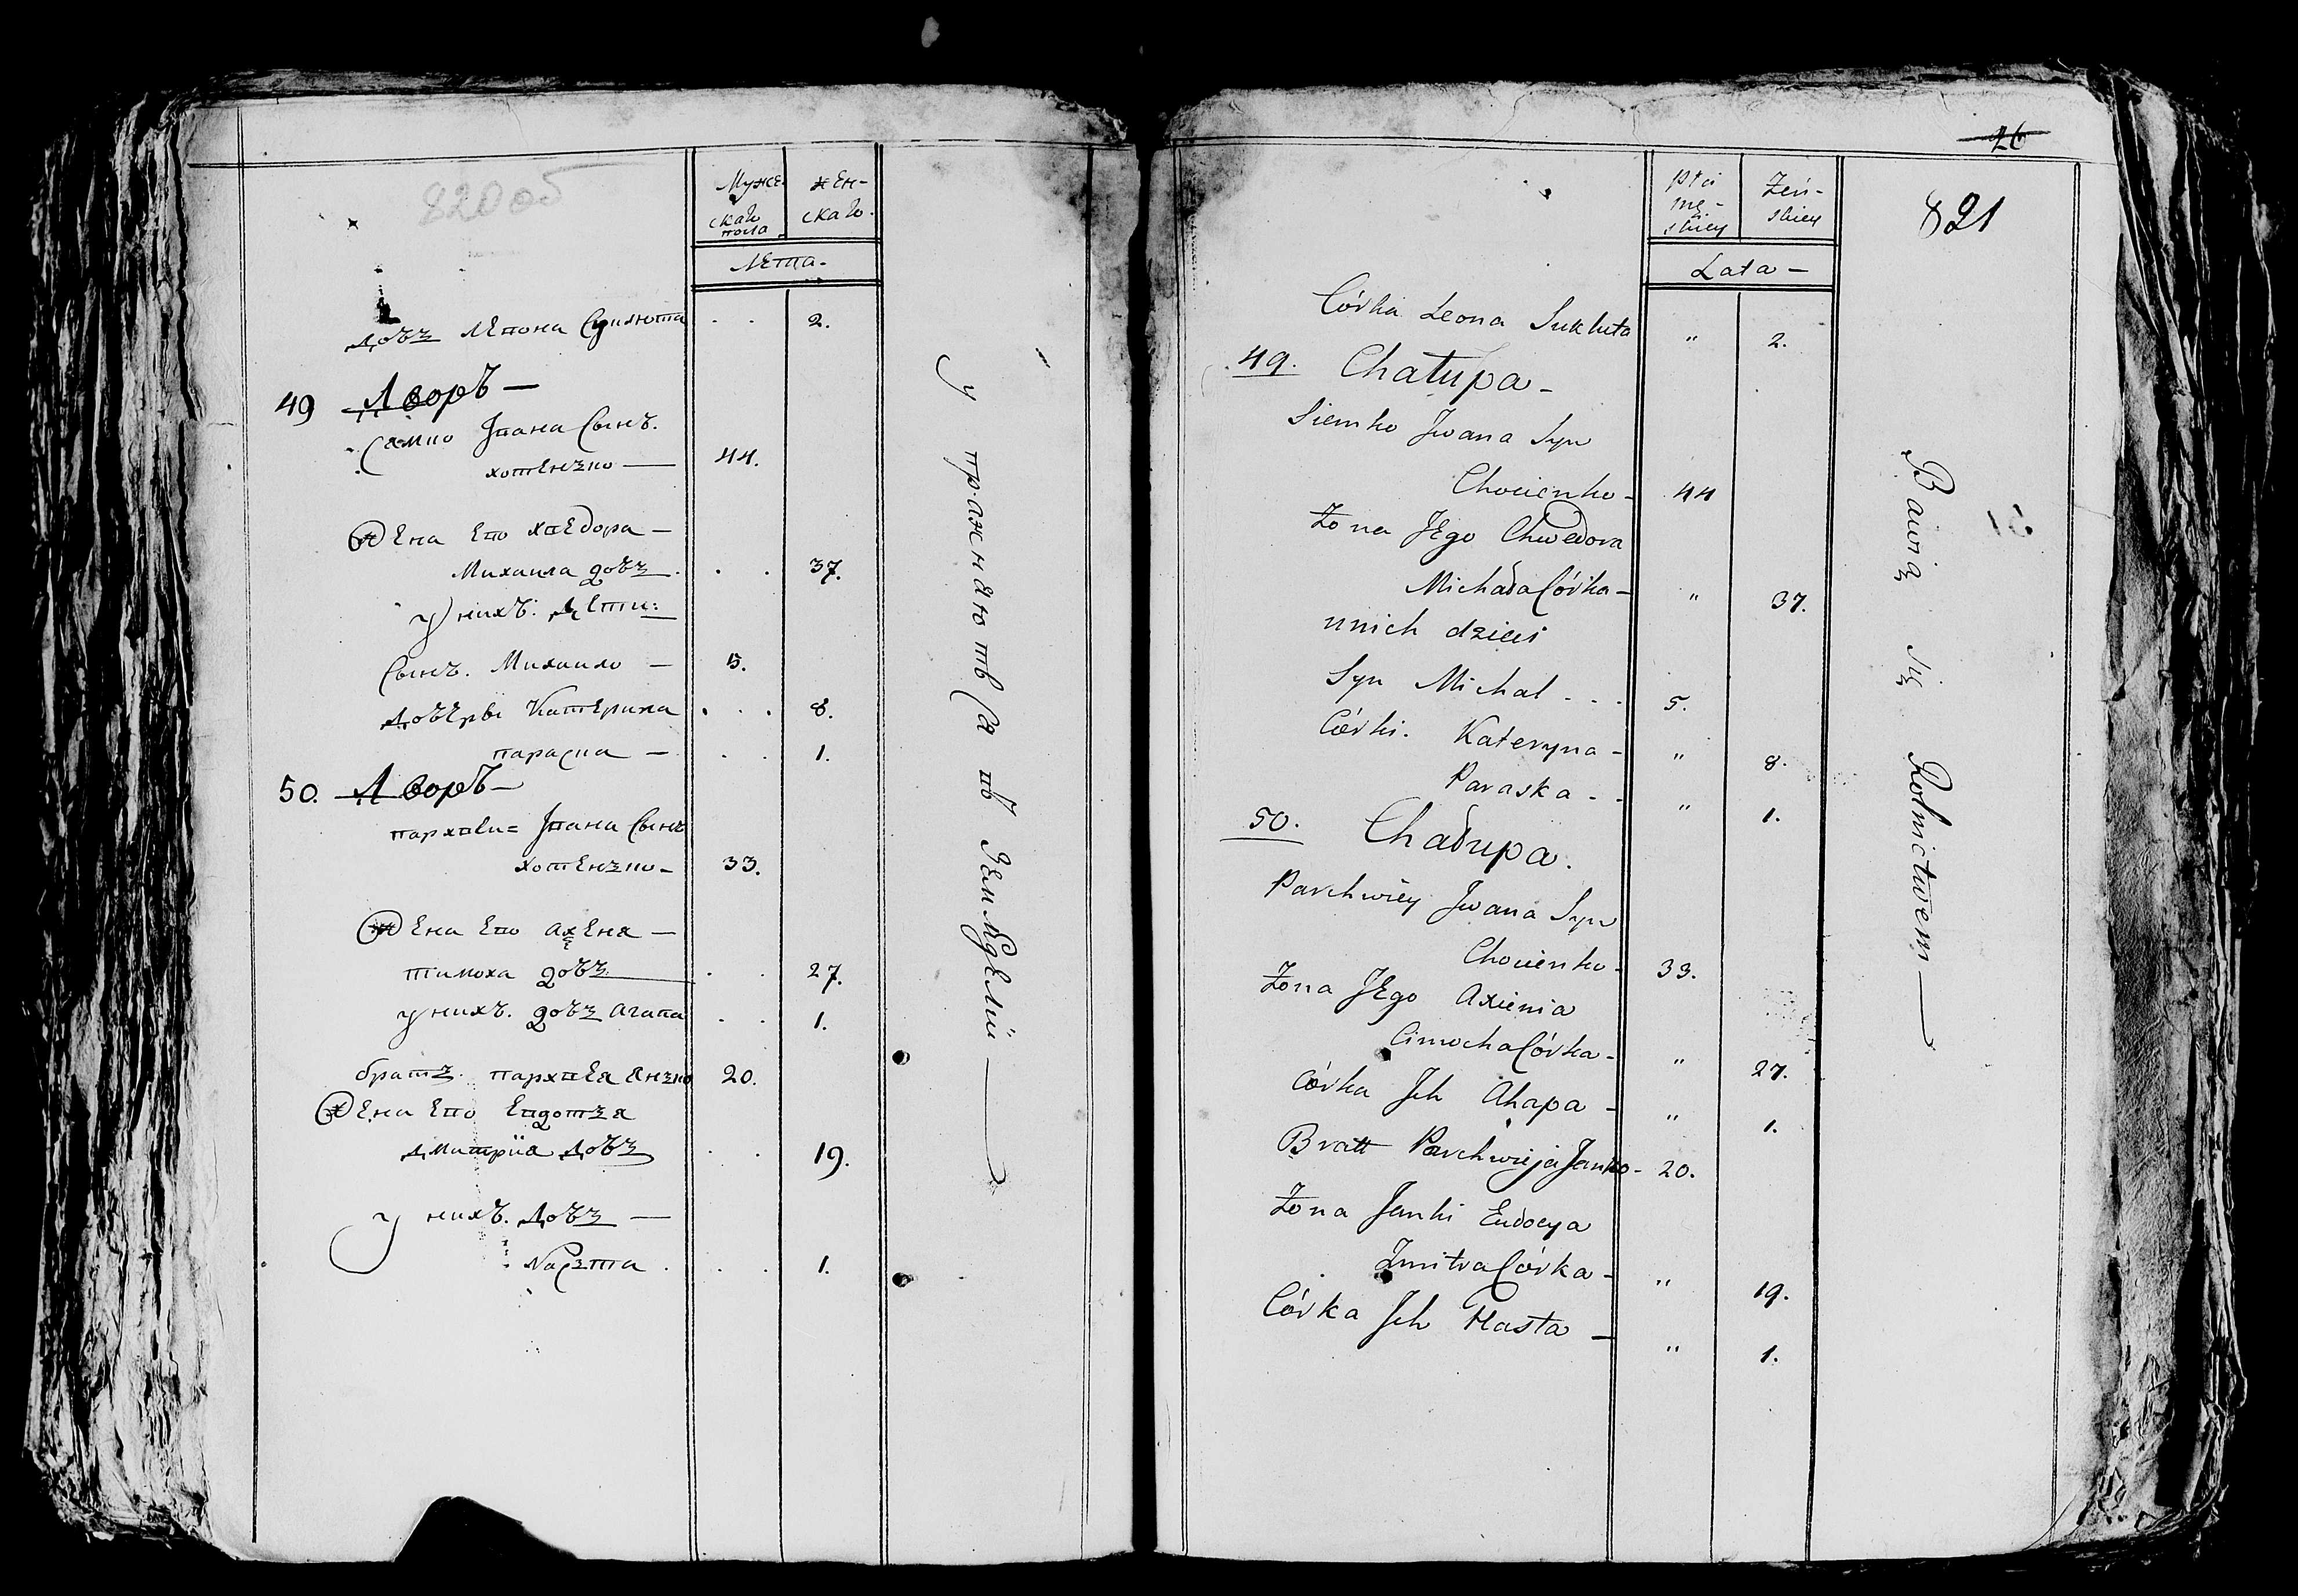 820 об
Муже
скаго
пола
жен-
скаго.
Лета-
довз Лепона Сушлюта . . 2.
49 Дворъ —
Сямпо Јпана Сынъ.
хотензпо — 44.
Жена Епо хпедора —
Михаила довз . . 37.
у нихъ. дЕти:
Сынъ. Михаило — 5.
довЕры Катерина . . . 8.
параспа — . . 1.
50. Дворъ —
пархпеи= Јпана Сынъ
хотензпо- 33.
Жена Епо ахеня —
тимоха довз . . 27.
у нихъ. довз агапа . . 1.
братз. пархпея янзпо 20.
Жена Епо Епдотзя
дмитріїя довз . . 19.
у нихъ. довз —
Nасзта . . . 1.
упражняютвся пъ Земледеліи —
26
821
Płci
mę-
skiey
Żeń-
skiey
Lata —
Córka Leona Sukluta " 2.
49. Chałupa -
Siemko Jwana Syn
Chocienko - 44
Żona JEgo Chwedora
Michała Córka - " 37.
unich dzieci
Syn Michał - - . 5.
Córki. Kateryna - " 8.
Paraska - - " 1.
50. Chałupa.
Parchwiey Jwana Syn
Chocienko - 33.
Żona JEgo Axienia
Cimocha Córka - " 27.
Córka Jch Ahapa - " 1.
Bratt Parchwieja Janko - 20.
Żona Janki Eudocya
Zmitra Córka - " 19.
Córka Jch Nasta — " 1.
Bawią się Rolnictwem —